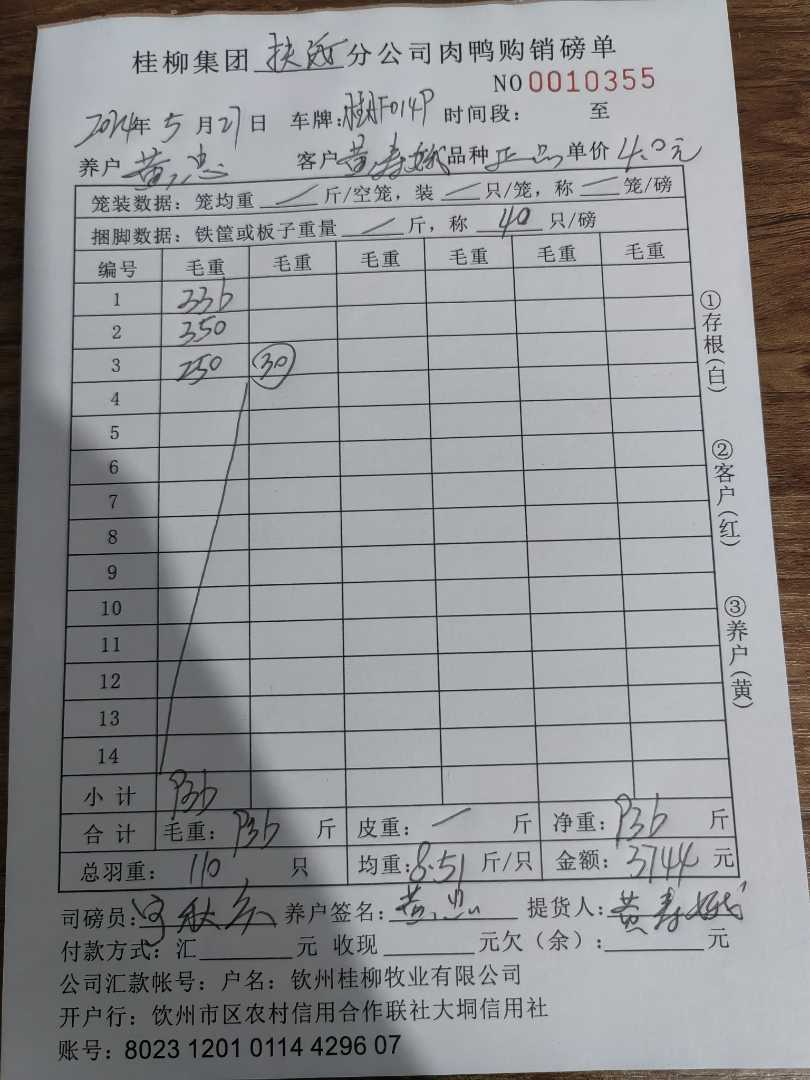 桂柳集团 分公司肉鸭购销磅单
NO 0010355
2024年 5 月 27 日 车牌: 时间段: 至
养户 黄忠 客户 黄寿 品种 正品 单价 4.0元
笼装数据: 笼均重 / 斤/空笼, 装 / 只/笼, 称 / 笼/磅
捆脚数据: 铁筐或板子重量 / 斤, 称 40 只/磅
编号 毛重 毛重 毛重 毛重 毛重 毛重
1 336
2 350
3 250 30
4
5
6
7
8
9
10
11
12
13
14
小计 936
合计 毛重: 936 斤 皮重: / 斤 净重: 936 斤
总羽重: 110 只 均重: 8.51 斤/只 金额: 3744 元
司磅员: 养户签名: 黄忠 提货人: 黄寿
付款方式: 汇 元 收现 元欠(余): 元
公司汇款帐号: 户名: 钦州桂柳牧业有限公司
开户行: 饮州市区农村信用合作联社大垌信用社
账号: 8023 1201 0114 4296 07
①存根(白)
②客户(红)
③养户(黄)